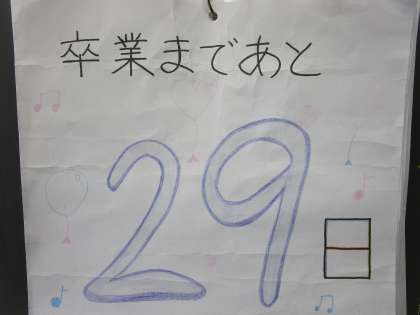 卒業まであと
29日